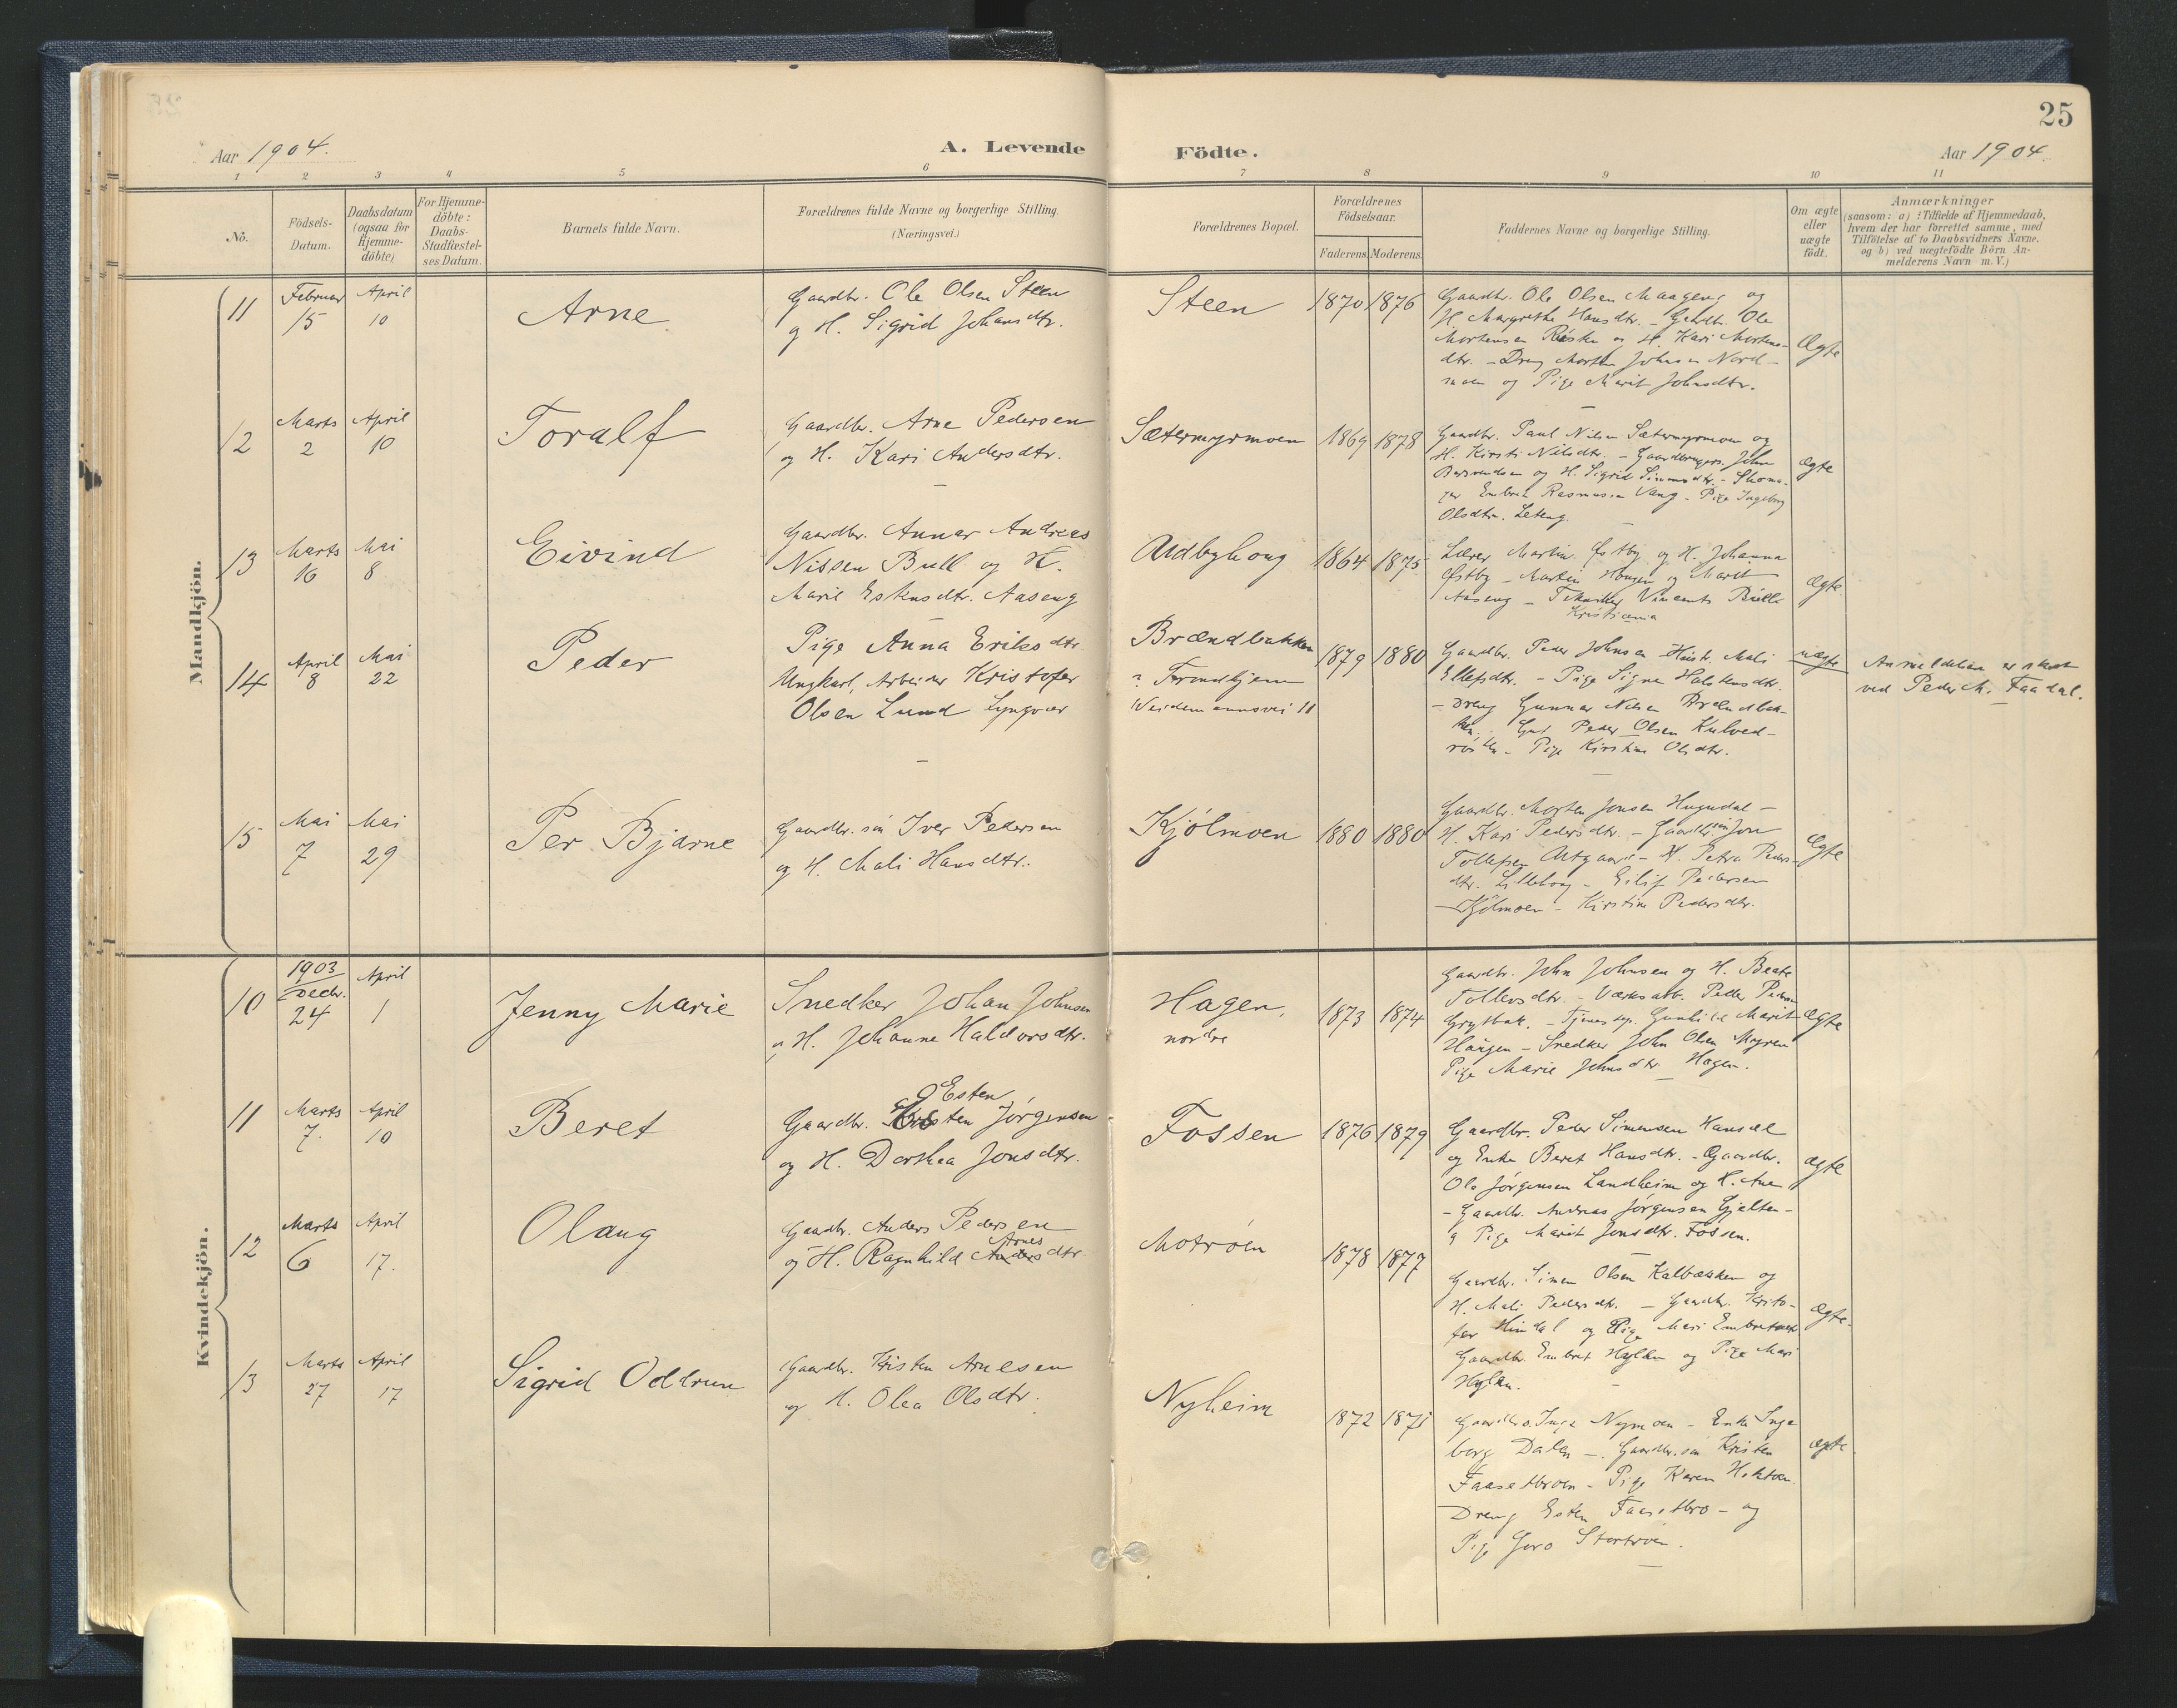 25
Aar 1904.
A. Levende Födte.
Aar 1904.
1 2 3 4 5 6 7 8 9 10 11
No.
Födsels-Datum.
Daabsdatum (ogsaa for Hjemme-döbte)
For Hjemme-döbte: Daabs-Stadfæstel-ses Datum.
Barnets fulde Navn.
Forældrenes fulde Navne og borgerlige Stilling.
(Næringsvei.)
Forældrenes Bopæl.
Forældrenes Födselsaar.
Faderens. Moderens.
Faddernes Navne og borgerlige Stilling.
Om ægte eller uægte födt.
Anmærkninger
(saasom: a) i Tilfælde af Hjemmedaab,
hvem der har forrettet samme, med
Tilföielse af to Daabsvidners Navne.
og b) ved uægtefödte Börn An-
melderens Navn m. V.)
Mandkjön.
11 Februar 15 April 10 Arne
Gaardbr. Ole Olsen Steen
og H. Sigrid Johansdtr.
Steen 1870 1876
Gaardbr. Ole Olsen Maageng og
H. Margrethe Hansdtr. - Gaardbr. Ole
Mortensen og H. Kari Mortens-
dtr. - Dreng Morten Johnsen Nord-
moen og Pige Marit Johnsdtr.
Ægte
12 Marts 2 April 10 Toralf
Gaardbr. Arne Pedersen
og H. Kari Andersdtr.
Sætermyrmoen 1869 1878
Gaardbr. Paul Nilsen Sætermyrmoen og
H. Kirsti Nilsdtr. - Gaardbruger John
og H. Sigrid Simensdtr. - Skoma-
ger Embret Rasmusen Vang - Pige Ingeborg
Olsdtr. Leteng.
ægte
13 Marts 16 Mai 8 Eivind
Gaardbr. Annar Andreas
Nissen Bull og H.
Marie Estensdtr. Aaseng
Udbyhaug 1864 1875
Lærer Martin Østby og H. Johanna
Østby - Martin Haugen og Marit
Aaseng - Vincents Bull
Kristiania
ægte
14 April 8 Mai 22 Peder
Pige Anna Eriksdtr.
Ungkarl, Arbeider Kristofer
Olsen Lund Lyngvær
Brændbakken
? Trondhjem
Weidemannsvei 11
1879 1880
Gaardbr. Peder Johnsen Hustr. Mali
Ellefsdtr. - Pige Signe Halstensdtr.
- Dreng Gunnar Nilsen Brændbak-
ken. Gut Peder Olsen Kulved-
røsten - Pige Kirstine Olsdtr.
uægte
Anmeldelsen er skeet
ved Peder M. Faadal.
15 Mai 7 Mai 29 Per Bjarne
Gaardbr. søn Iver Pedersen
og H. Mali Hansdtr.
Kjølmoen 1880 1880
Gaardbr. Morten Jonsen Hugudal -
H. Kari Pedersdtr. - Gaardbr. søn Jon
Tollefsen Utgaard - H. Petra Peders-
dtr. Lillehaug - Eilif Pedersen
Kjølmoen - Kirstine Pedersdtr.
Ægte
Kvindekjön.
10 1903 Decbr. 24 April 1 Jenny Marie
Snedker Johan Johnsen
og H. Johanne Haldorsdtr.
Hagen, nordre 1873 1874
Gaardbr. John Johnsen og H. Beate
Tollevsdtr. - Værksarb. Peder Pedersen
Grytbak. - Tjenestep. Gunhild Marit
Haugen - Snedker John Olsen Myren
Pige Marie Johnsdtr. Hagen.
ægte
11 Marts 7. April 10 Beret
Esten
Gaardbr. Jørgensen
og H. Dorthea Jonsdtr.
Fossen 1876 1879
Gaardbr. Peder Simensen Hansæl
og Enke Beret Hansdtr. - Gaardbr.
Ole Jørgensen Landheim og H. Ane
- Gaardbr. Andreas Jørgensen Gjelten -
og Pige Marit Jonsdtr. Fossen.
ægte
12 Marts 6 April 17. Olaug
Gaardbr. Anders Pedersen
Arnes
og H. Ragnhild Andersdtr.
Motrøen 1878 1877
Gaardbr. Simen Olsen Kalbækken og
H. Mali Pedersdtr. - Gaardbr. Kristo-
fer Himdal og Pige Mari Embretsdtr.
Gaardbr. Embret Hylen og Pige Mari
Hylen.
Ægte.
13 Marts 27 April 17 Sigrid Oddrun
Gaardbr. Kristen Arnesen
og H. Olea Olsdtr.
Nyheim 1872 1871
Gaardbr. Inge Nymoen - Enke Inge
borg Dalen - Gaardbr. søn Kristen
Faasetbroen - Pige Karen Hektoen
Dreng Esten Faasetbro - og
Pige Goro Stortrøen.
ægte.